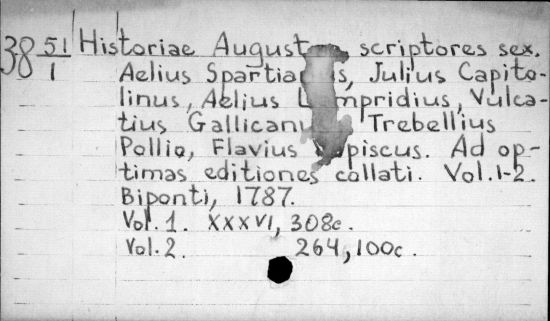 38 51/1 Historiae August scriptores sex.
Aelius Spartia s, Julius Capito-
linus, Aelius L mpridius, Vulca-
tius Gallicanu Trebellius
Pollio, Flavius piscus. Ad op-
timas editiones collati. Vol.1-2.
Biponti, 1787.
Vol. 1. XXXVI, 308c.
Vol. 2. 264, 100c.